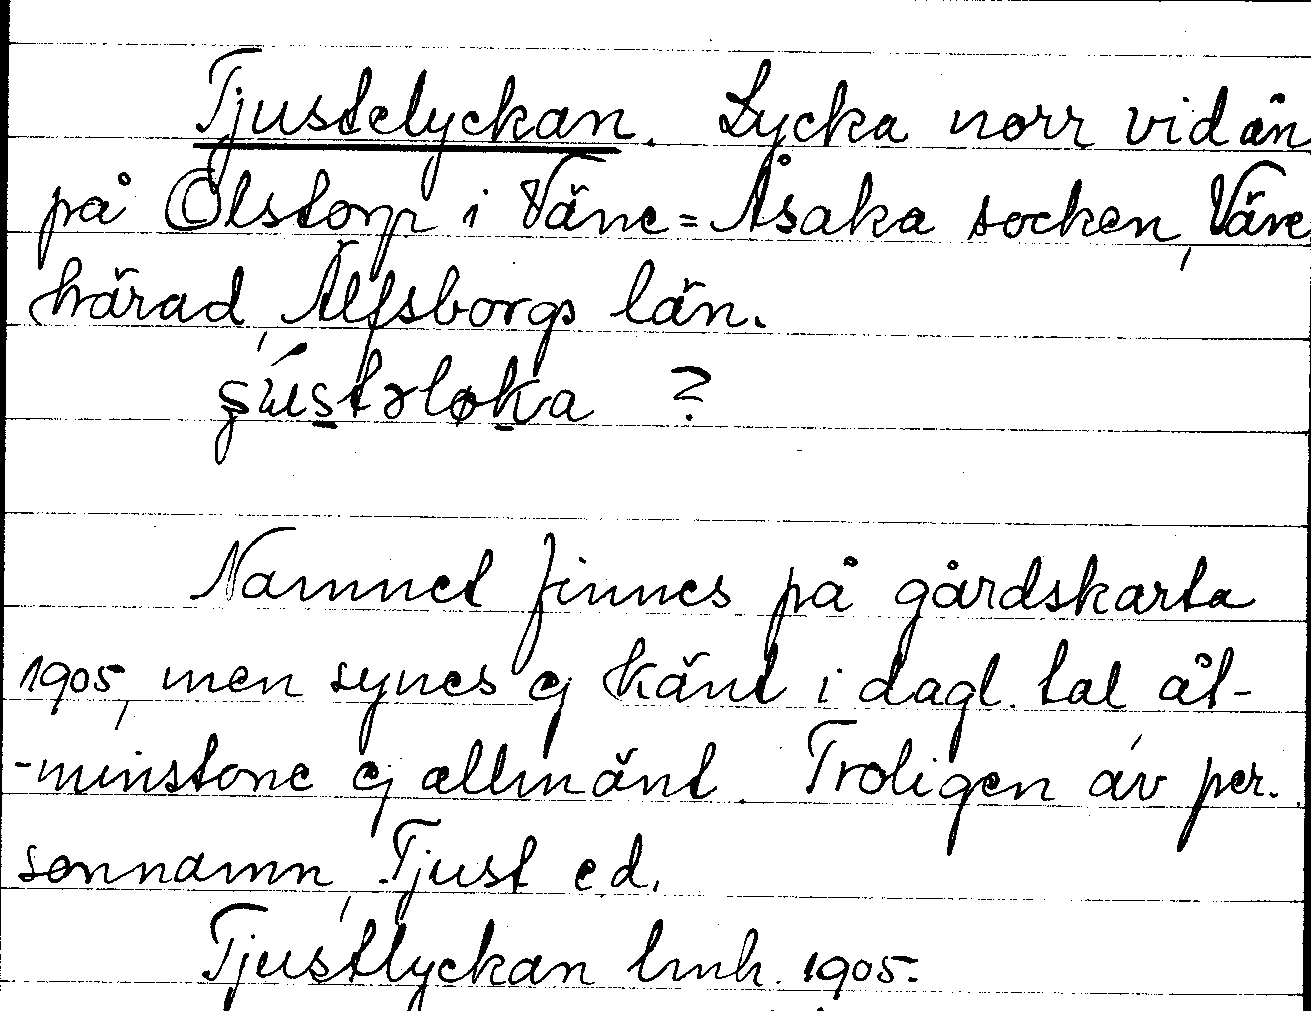 Tjustelyckan. Lycka norr vid ån
på Olstorp i Väne=Åsaka socken, Väne
härad, Älfsborgs län.
?
Namnet finnes på gårdskarta
1905, men synes ej känt i dagl. tal åt-
-minstone ej allmänt. Troligen av per-
sonnamn, Tjust e.d.
Tjustlyckan lmh. 1905.